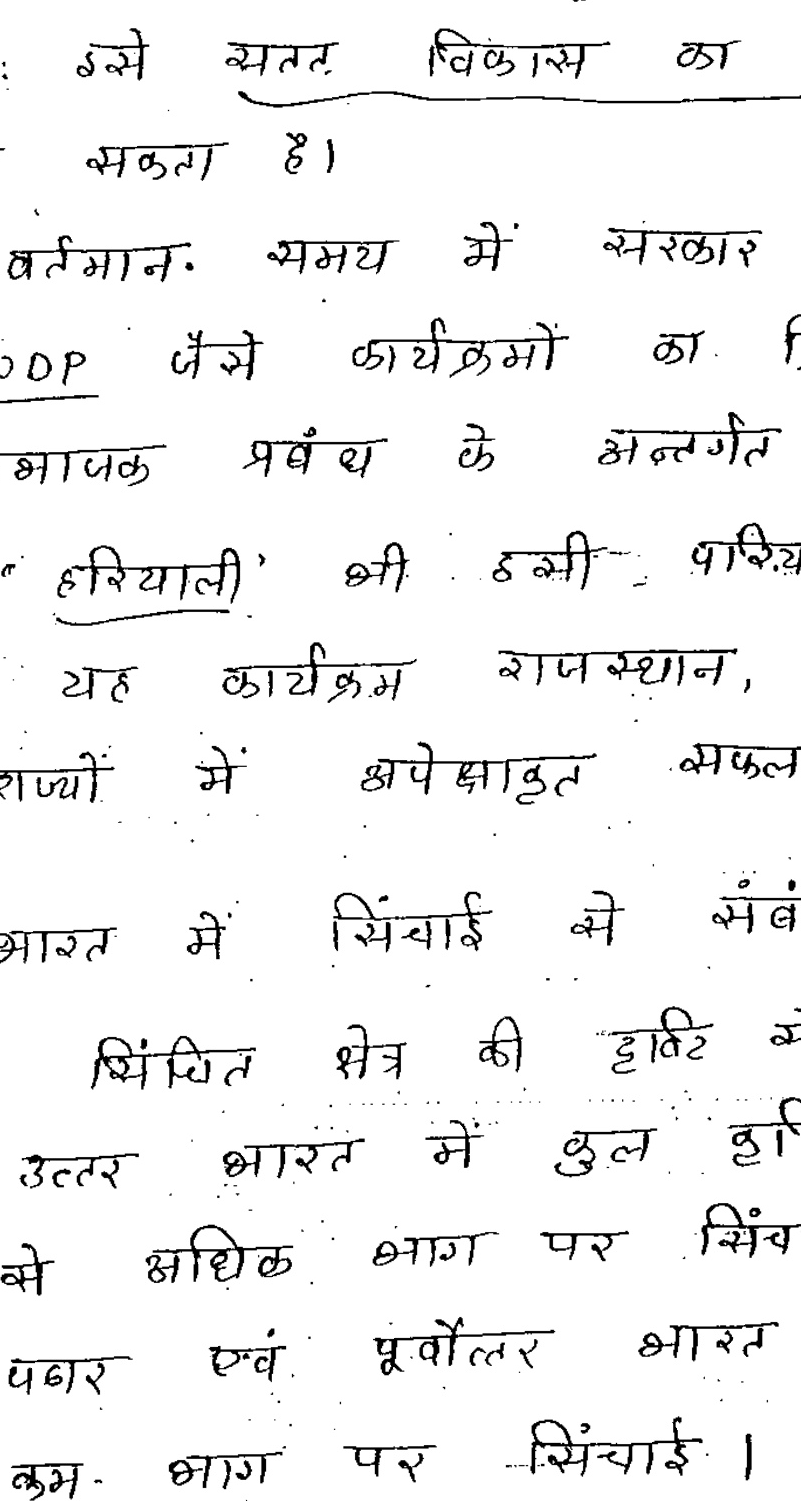 : इसे सतत विकास का
सकता है।
वर्तमान समय में सरकार
DDP जैसे कार्यक्रमों का
भाजक प्रबंध के अन्तर्गत
" हरियाली' भी इसी परिय
यह कार्यक्रम राजस्थान,
राज्यों में अपेक्षाकृत सफल
भारत में सिंचाई से संबं
सिंचित क्षेत्र की दृष्टि से
उत्तर भारत में कुल कृ
से अधिक भाग पर सिंच
पठार एवं पूर्वोत्तर भारत
कम भाग पर सिंचाई ।